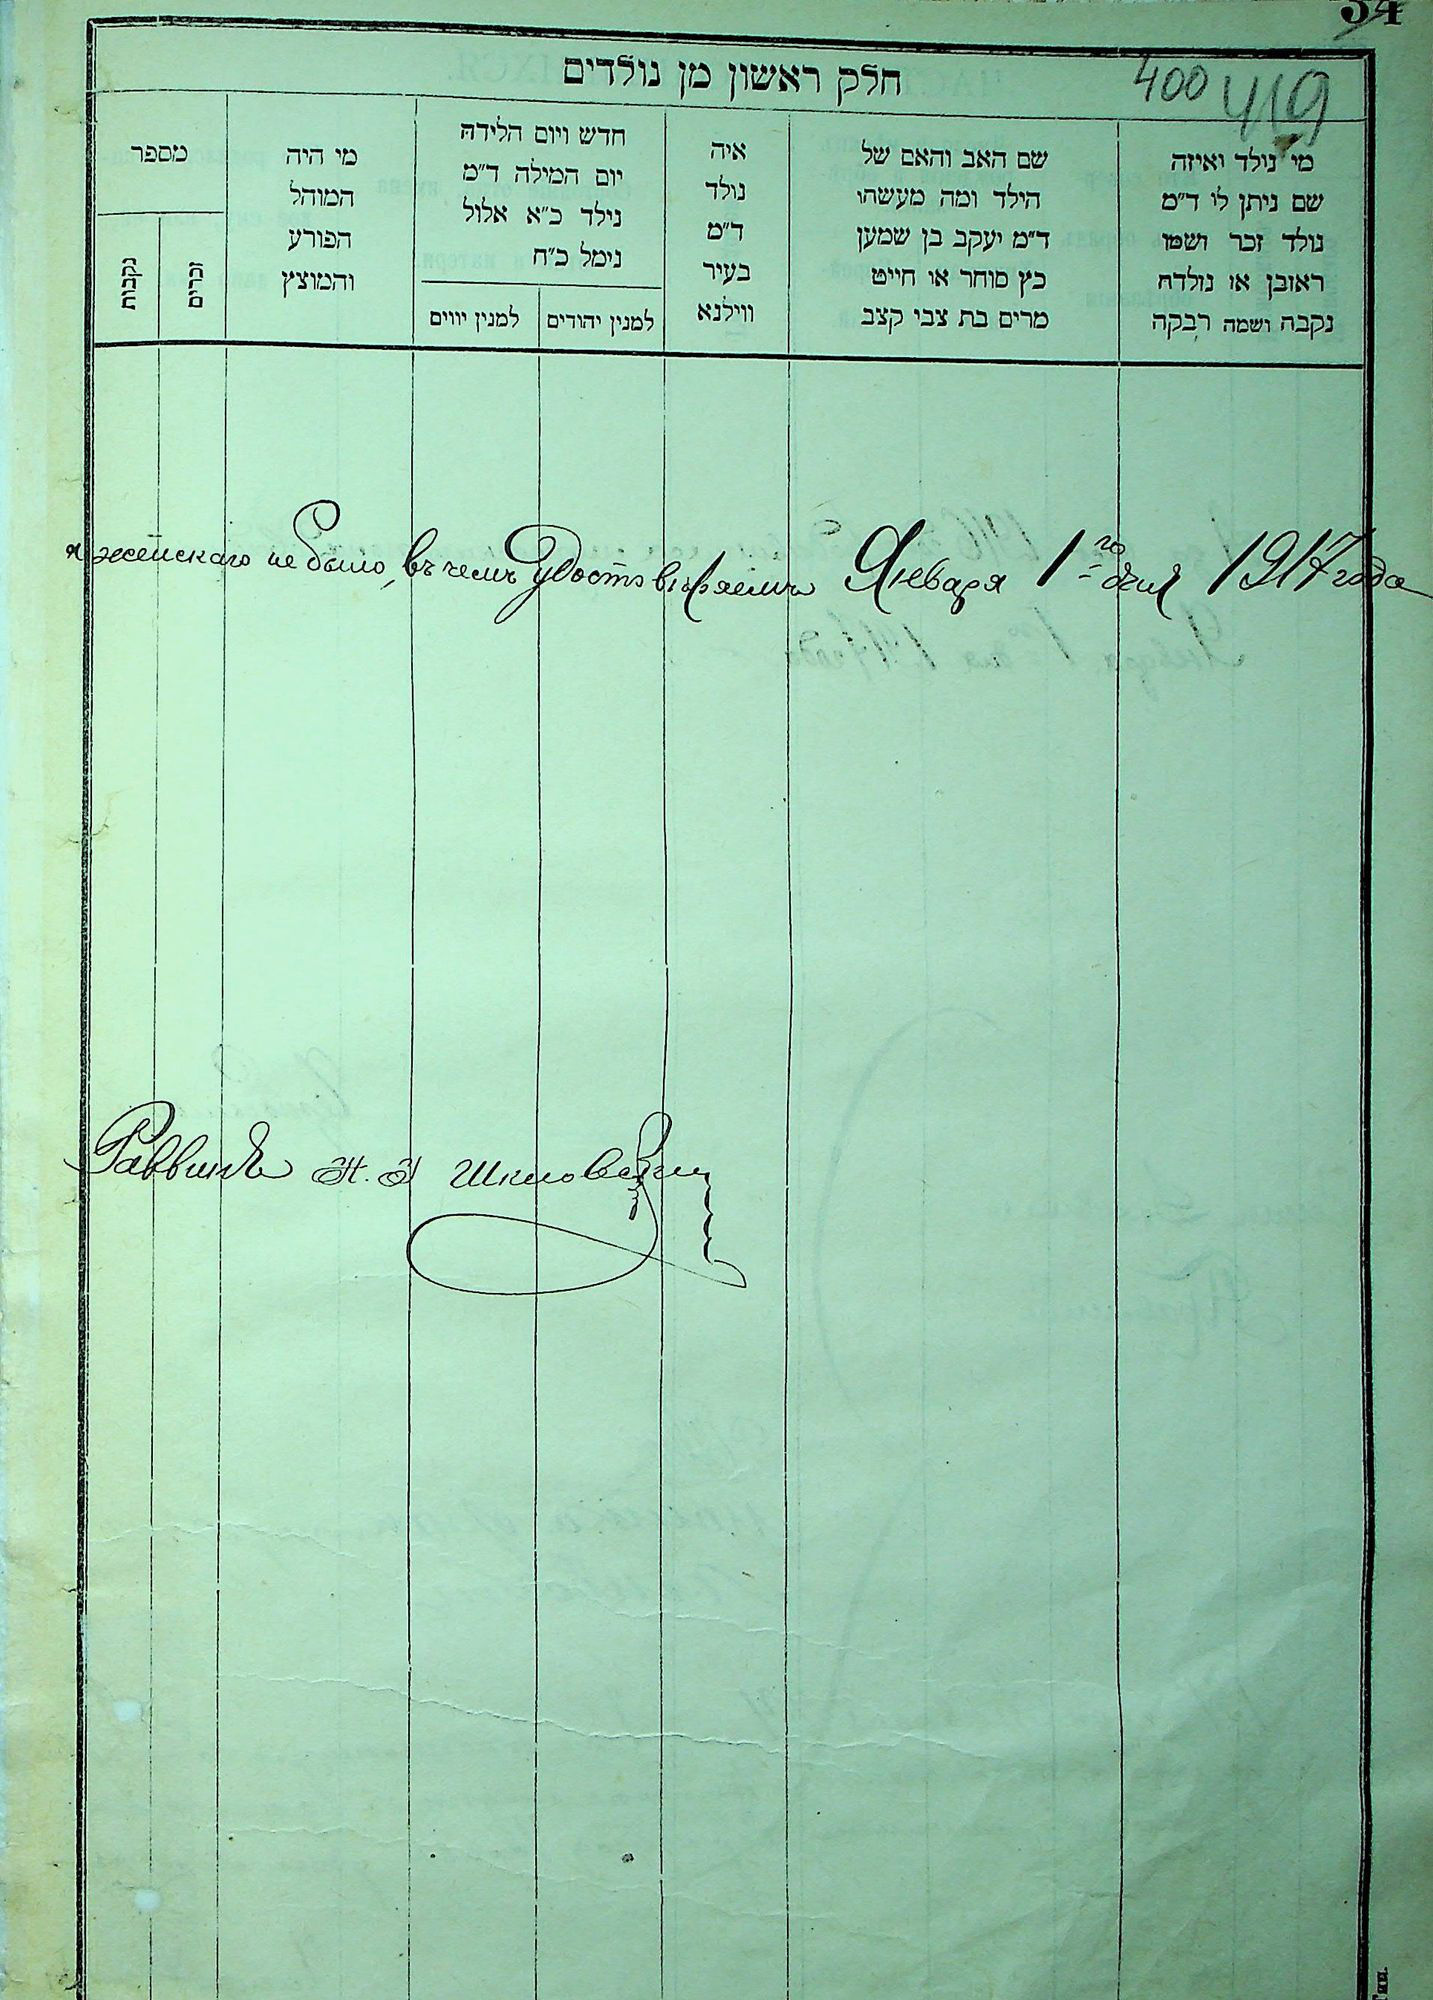 34
חלק ראשון מן נולדים
400 419
מי נולד ואיזה
שם ניתן לו ד״מ
נולד זכר ושמו
ראובן או נולדה
נקבה ושמה רבקה
שם האב והאם של
הילד ומה מעשהו
ד״מ יעקב בן שמעון
כץ סוחר או חייט
מרים בת צבי קצב
איה
נולד
ד״מ
בעיר
ווילנא
חדש ויום הלידה
יום המילה ד״מ
נילד כ״א אלול
נימל כ״ח
למנין יהודים
למנין יווים
מי היה
המוהל
הפורע
והמוצץ
מספר
זכרים
נקבות
и женскаго не было, въ чемъ удостовѣряемъ Января 1го дня 1917 года
Раввинъ Н. Э Шкловскій
Тип.